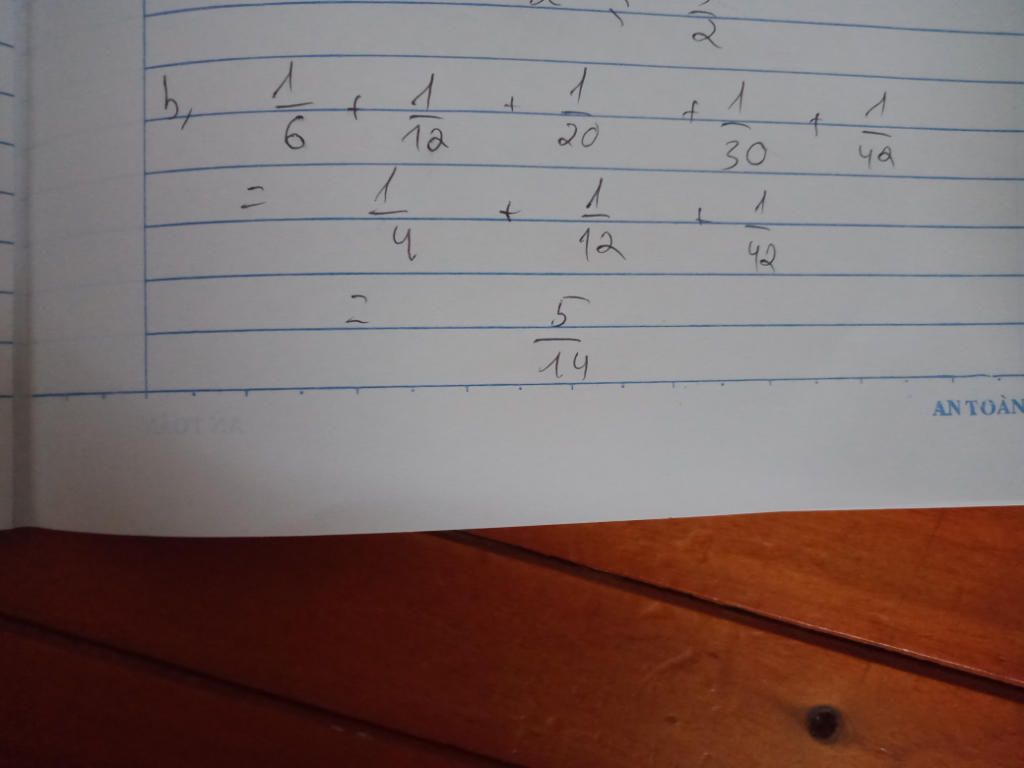 2
b, 1/6 + 1/12 + 1/20 + 1/30 + 1/42
= 1/4 + 1/12 + 1/42
= 5/14
AN TOÀN